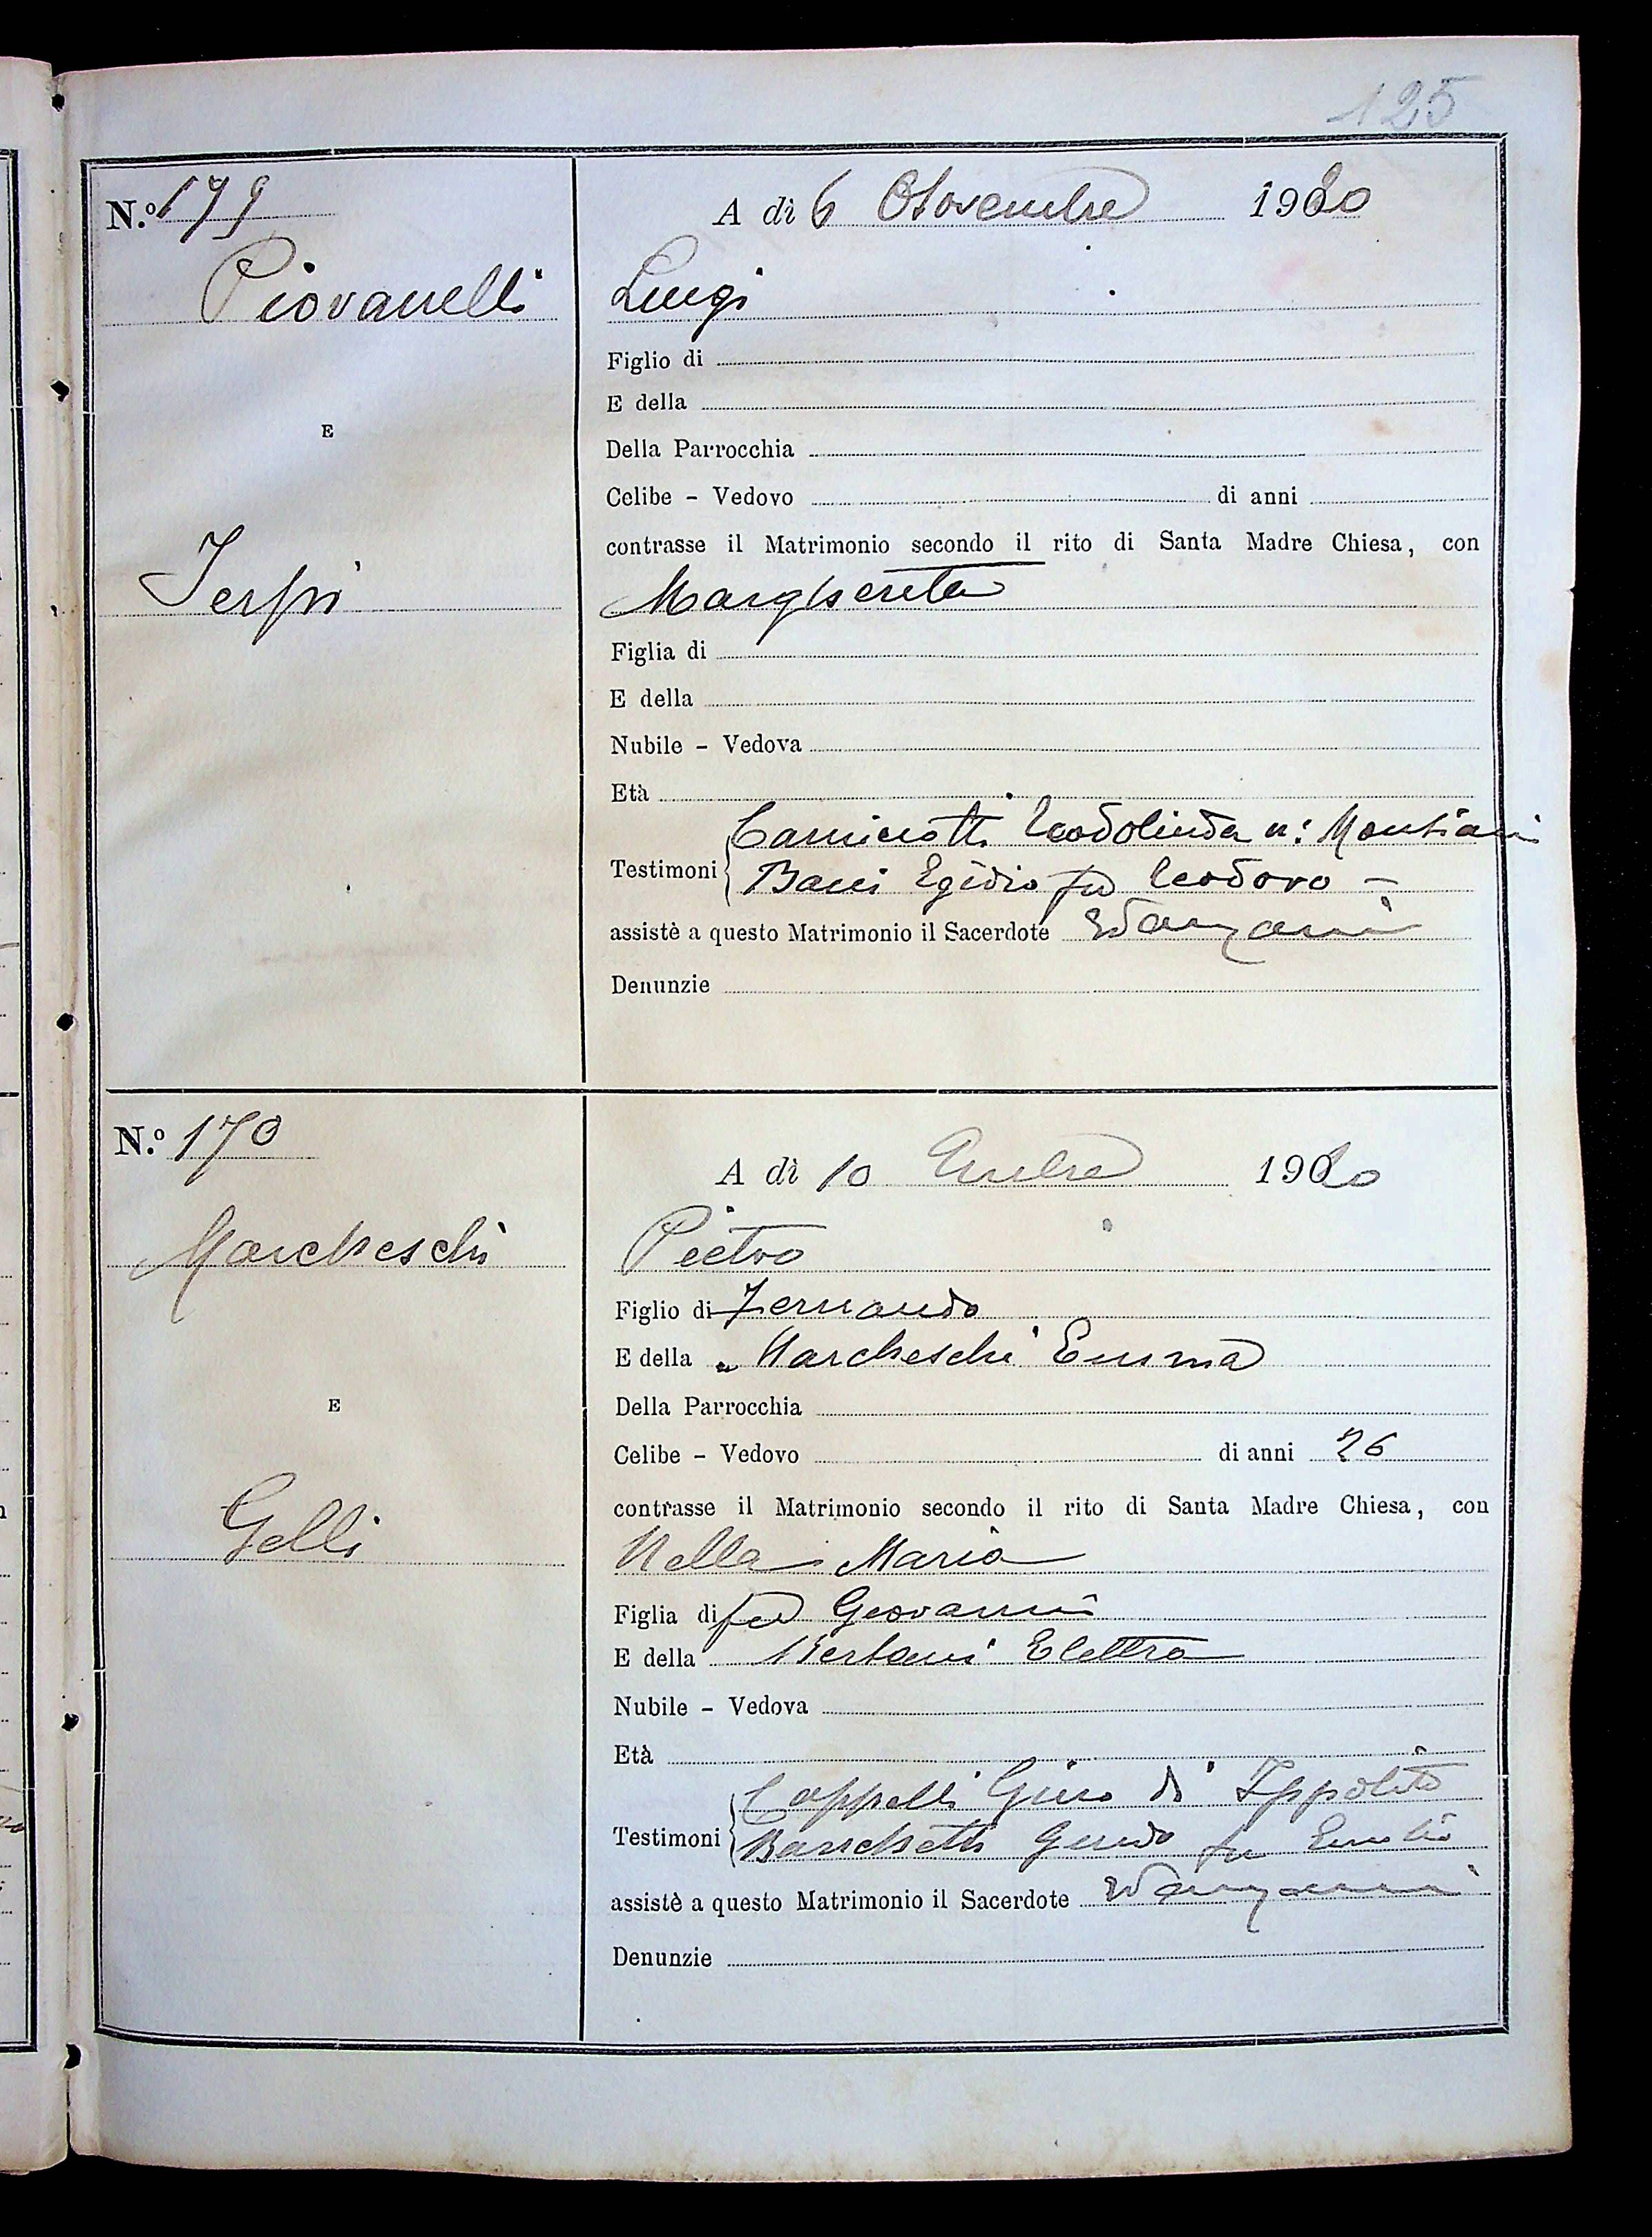 125
N.º 179
A dì 6 Novembre 1920
Piovanelli
Luigi
Figlio di
E della
Della Parrocchia
E
Celibe - Vedovo di anni
contrasse il Matrimonio secondo il rito di Santa Madre Chiesa, con
Margherita
Figlia di
E della
Nubile - Vedova
Età
Teodolinda n:
Testimoni
Egidio fu Teodoro -
assistè a questo Matrimonio il Sacerdote
Denunzie
N.º 170
A dì 10 1920
Marcheschi
Pietro
Figlio di Fernando
E della Marcheschi Emma
Della Parrocchia
E
Celibe - Vedovo di anni 26
contrasse il Matrimonio secondo il rito di Santa Madre Chiesa, con
Gelli
Nella Maria
Figlia di fu Giovanni
E della Elettra
Nubile - Vedova
Età
Cappelli Gino di Ippolito
Testimoni
Banchetti Guido fu Emilio
assistè a questo Matrimonio il Sacerdote
Denunzie